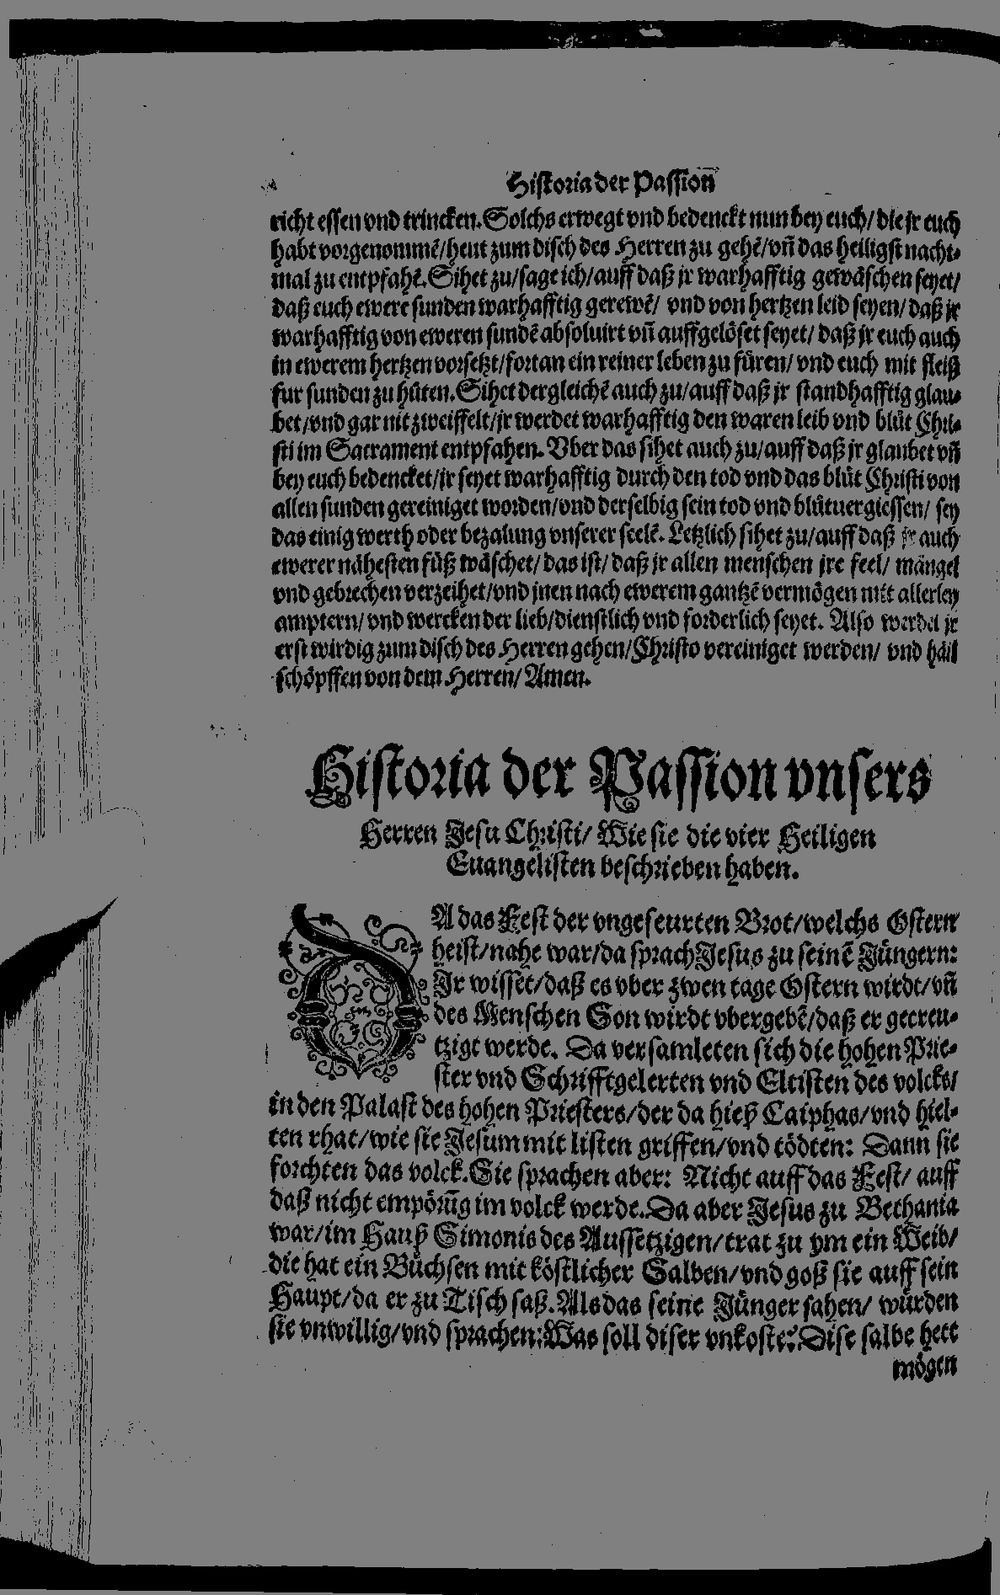 Historia der Passion
richt essen vnd trincken. Solchs erwegt vnd bedenckt nun bey euch/ die jr euch
habt vorgenommē/ heut zum disch des Herren zu gehē/ vñ das heiligst nacht-
mal zu entpfahē. Sihet zu/ sage ich/ auff daß jr warhafftig gewäschen seyet/
daß euch ewere sunden warhafftig gerewē/ vnd von hertzen leid seyen/ daß jr
warhafftig von eweren sundē absoluirt vñ auffgelöset seyet/ daß jr euch auch
in ewerem hertzen vorsetzt/ fortan ein reiner leben zu füren/ vnd euch mit fleiß
fur sunden zu hüten. Sihet dergleichē auch zu/ auff daß jr standhafftig glau-
bet/ vnd gar nit zweiffelt/ jr werdet warhafftig den waren leib vnd blüt Chri-
sti im Sacrament entpfahen. Vber das sihet auch zu/ auff daß jr glaubet vñ
bey euch bedencket/ jr seyet warhafftig durch den tod vnd das blüt Christi von
allen sunden gereiniget worden/ vnd derselbig sein tod vnd blütuergiessen/ sey
das einig werth oder bezalung vnserer seelē. Letzlich sihet zu/ auff daß jr auch
ewerer nähesten füß wäschet/ das ist/ daß jr allen menschen jre feel/ mängel
vnd gebrechen verzeihet/ vnd jnen nach ewerem gantzē vermögen mit allerley
amptern/ vnd wercken der lieb/ dienstlich vnd forderlich seyet. Also werdet jr
erst wirdig zum disch des Herren gehen/ Christo vereiniget werden/ vnd häil
schöpffen von dem Herren/ Amen.
Historia der Passion vnsers
Herren Jesu Christi/ Wie sie die vier Heiligen
Euangelisten beschrieben haben.
DA das Fest der vngeseurten Brot/ welchs Ostern
heist/ nahe war/ da sprach Jesus zu seinē Jüngern:
Jr wisset/ daß es vber zwen tage Ostern wirdt/ vñ
des Menschen Son wirdt vbergebē/ daß er gecreu-
tzigt werde. Da versamleten sich die hohen Prie-
ster vnd Schrifftgelerten vnd Eltisten des volcks/
in den Palast des hohen Priesters/ der da hieß Caiphas/ vnd hiel-
ten rhat/ wie sie Jesum mit listen griffen/ vnd tödten: Dann sie
forchten das volck. Sie sprachen aber: Nicht auff das Fest/ auff
daß nicht empörūg im volck werde. Da aber Jesus zu Bethania
war/ im Hauß Simonis des Aussetzigen/ trat zu ym ein Weib/
die hat ein Büchsen mit köstlicher Salben/ vnd goß sie auff sein
Haupt/ da er zu Tisch saß. Als das seine Jünger sahen/ würden
sie vnwillig/ vnd sprachen: Was soll diser vnkoste? Dise salbe hett
mögen